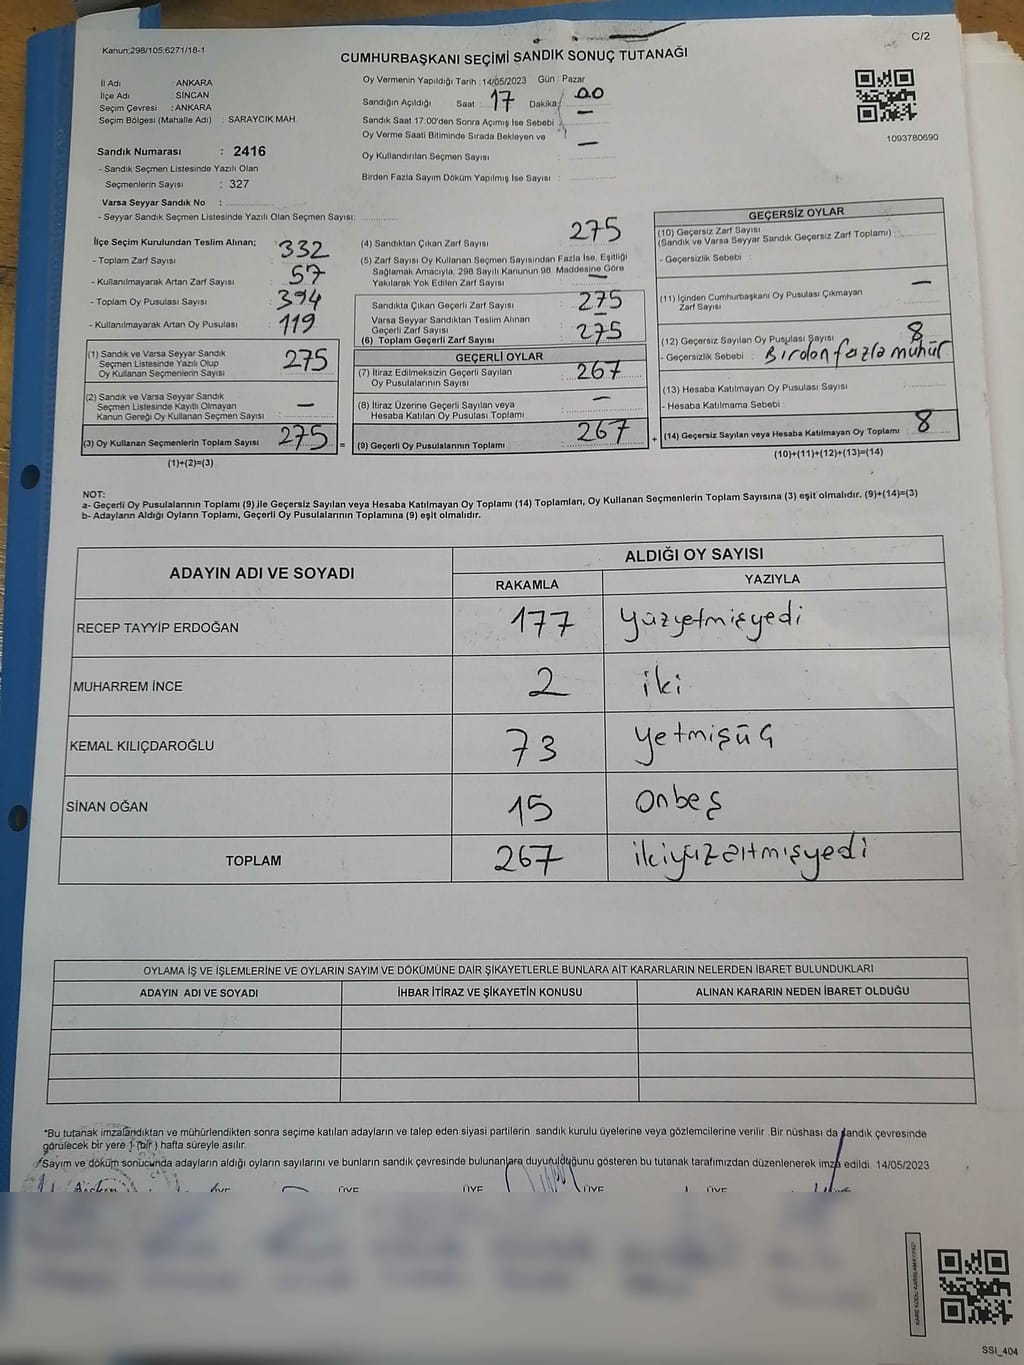 Kanun:298/105;6271/18-1
C/2
CUMHURBAŞKANI SEÇİMİ SANDIK SONUÇ TUTANAĞI
İl Adı : ANKARA
İlçe Adı : SİNCAN
Seçim Çevresi : ANKARA
Seçim Bölgesi (Mahalle Adı) : SARAYCIK MAH.
Sandık Numarası : 2416
- Sandık Seçmen Listesinde Yazılı Olan
Seçmenlerin Sayısı : 327
Varsa Seyyar Sandık No :
- Seyyar Sandık Seçmen Listesinde Yazılı Olan Seçmen Sayısı:
Oy Vermenin Yapıldığı Tarih : 14/05/2023 Gün : Pazar
Sandığın Açıldığı Saat : 17 Dakika : 00
Sandık Saat 17:00'den Sonra Açımış İse Sebebi : —
Oy Verme Saati Bitiminde Sırada Bekleyen ve
Oy Kullandırılan Seçmen Sayısı : —
Birden Fazla Sayım Döküm Yapılmış İse Sayısı :
1093780690
İlçe Seçim Kurulundan Teslim Alınan;
- Toplam Zarf Sayısı : 332
- Kullanılmayarak Artan Zarf Sayısı : 57
- Toplam Oy Pusulası Sayısı : 394
- Kullanılmayarak Artan Oy Pusulası : 119
(1) Sandık ve Varsa Seyyar Sandık
Seçmen Listesinde Yazılı Olup
Oy Kullanan Seçmenlerin Sayısı : 275
(2) Sandık ve Varsa Seyyar Sandık
Seçmen Listesinde Kayıtlı Olmayan
Kanun Gereği Oy Kullanan Seçmen Sayısı : —
(3) Oy Kullanan Seçmenlerin Toplam Sayısı : 275 =
(1)+(2)=(3)
(4) Sandıktan Çıkan Zarf Sayısı : 275
(5) Zarf Sayısı Oy Kullanan Seçmen Sayısından Fazla İse, Eşitliği
Sağlamak Amacıyla; 298 Sayılı Kanunun 98. Maddesine Göre
Yakılarak Yok Edilen Zarf Sayısı : —
Sandıkta Çıkan Geçerli Zarf Sayısı : 275
Varsa Seyyar Sandıktan Teslim Alınan
Geçerli Zarf Sayısı : —
(6) Toplam Geçerli Zarf Sayısı : 275
GEÇERLİ OYLAR
(7) İtiraz Edilmeksizin Geçerli Sayılan
Oy Pusulalarının Sayısı : 267
(8) İtiraz Üzerine Geçerli Sayılan veya
Hesaba Katılan Oy Pusulası Toplamı : —
(9) Geçerli Oy Pusulalarının Toplamı : 267 +
GEÇERSİZ OYLAR
(10) Geçersiz Zarf Sayısı
(Sandık ve Varsa Seyyar Sandık Geçersiz Zarf Toplamı) :
- Geçersizlik Sebebi :
(11) İçinden Cumhurbaşkanı Oy Pusulası Çıkmayan
Zarf Sayısı : —
(12) Geçersiz Sayılan Oy Pusulası Sayısı : 8
- Geçersizlik Sebebi : Birden fazla mühür
(13) Hesaba Katılmayan Oy Pusulası Sayısı :
- Hesaba Katılmama Sebebi :
(14) Geçersiz Sayılan veya Hesaba Katılmayan Oy Toplamı : 8
(10)+(11)+(12)+(13)=(14)
NOT:
a- Geçerli Oy Pusulalarının Toplamı (9) ile Geçersiz Sayılan veya Hesaba Katılmayan Oy Toplamı (14) Toplamları, Oy Kullanan Seçmenlerin Toplam Sayısına (3) eşit olmalıdır. (9)+(14)=(3)
b- Adayların Aldığı Oyların Toplamı, Geçerli Oy Pusulalarının Toplamına (9) eşit olmalıdır.
ADAYIN ADI VE SOYADI
ALDIĞI OY SAYISI
RAKAMLA YAZIYLA
RECEP TAYYİP ERDOĞAN 177 yüzyetmişyedi
MUHARREM İNCE 2 iki
KEMAL KILIÇDAROĞLU 73 yetmişüç
SİNAN OĞAN 15 onbeş
TOPLAM 267 ikiyüzaltmışyedi
OYLAMA İŞ VE İŞLEMLERİNE VE OYLARIN SAYIM VE DÖKÜMÜNE DAİR ŞİKAYETLERLE BUNLARA AİT KARARLARIN NELERDEN İBARET BULUNDUKLARI
ADAYIN ADI VE SOYADI İHBAR İTİRAZ VE ŞİKAYETİN KONUSU ALINAN KARARIN NEDEN İBARET OLDUĞU
*Bu tutanak imzalandıktan ve mühürlendikten sonra seçime katılan adayların ve talep eden siyasi partilerin sandık kurulu üyelerine veya gözlemcilerine verilir. Bir nüshası da sandık çevresinde
görülecek bir yere 1 (bir) hafta süreyle asılır.
Sayım ve döküm sonucunda adayların aldığı oyların sayılarını ve bunların sandık çevresinde bulunanlara duyurulduğunu gösteren bu tutanak tarafımızdan düzenlenerek imza edildi. 14/05/2023
ÜYE ÜYE ÜYE ÜYE ÜYE
KARE KODU KARALAMAYINIZ!
SSI_404